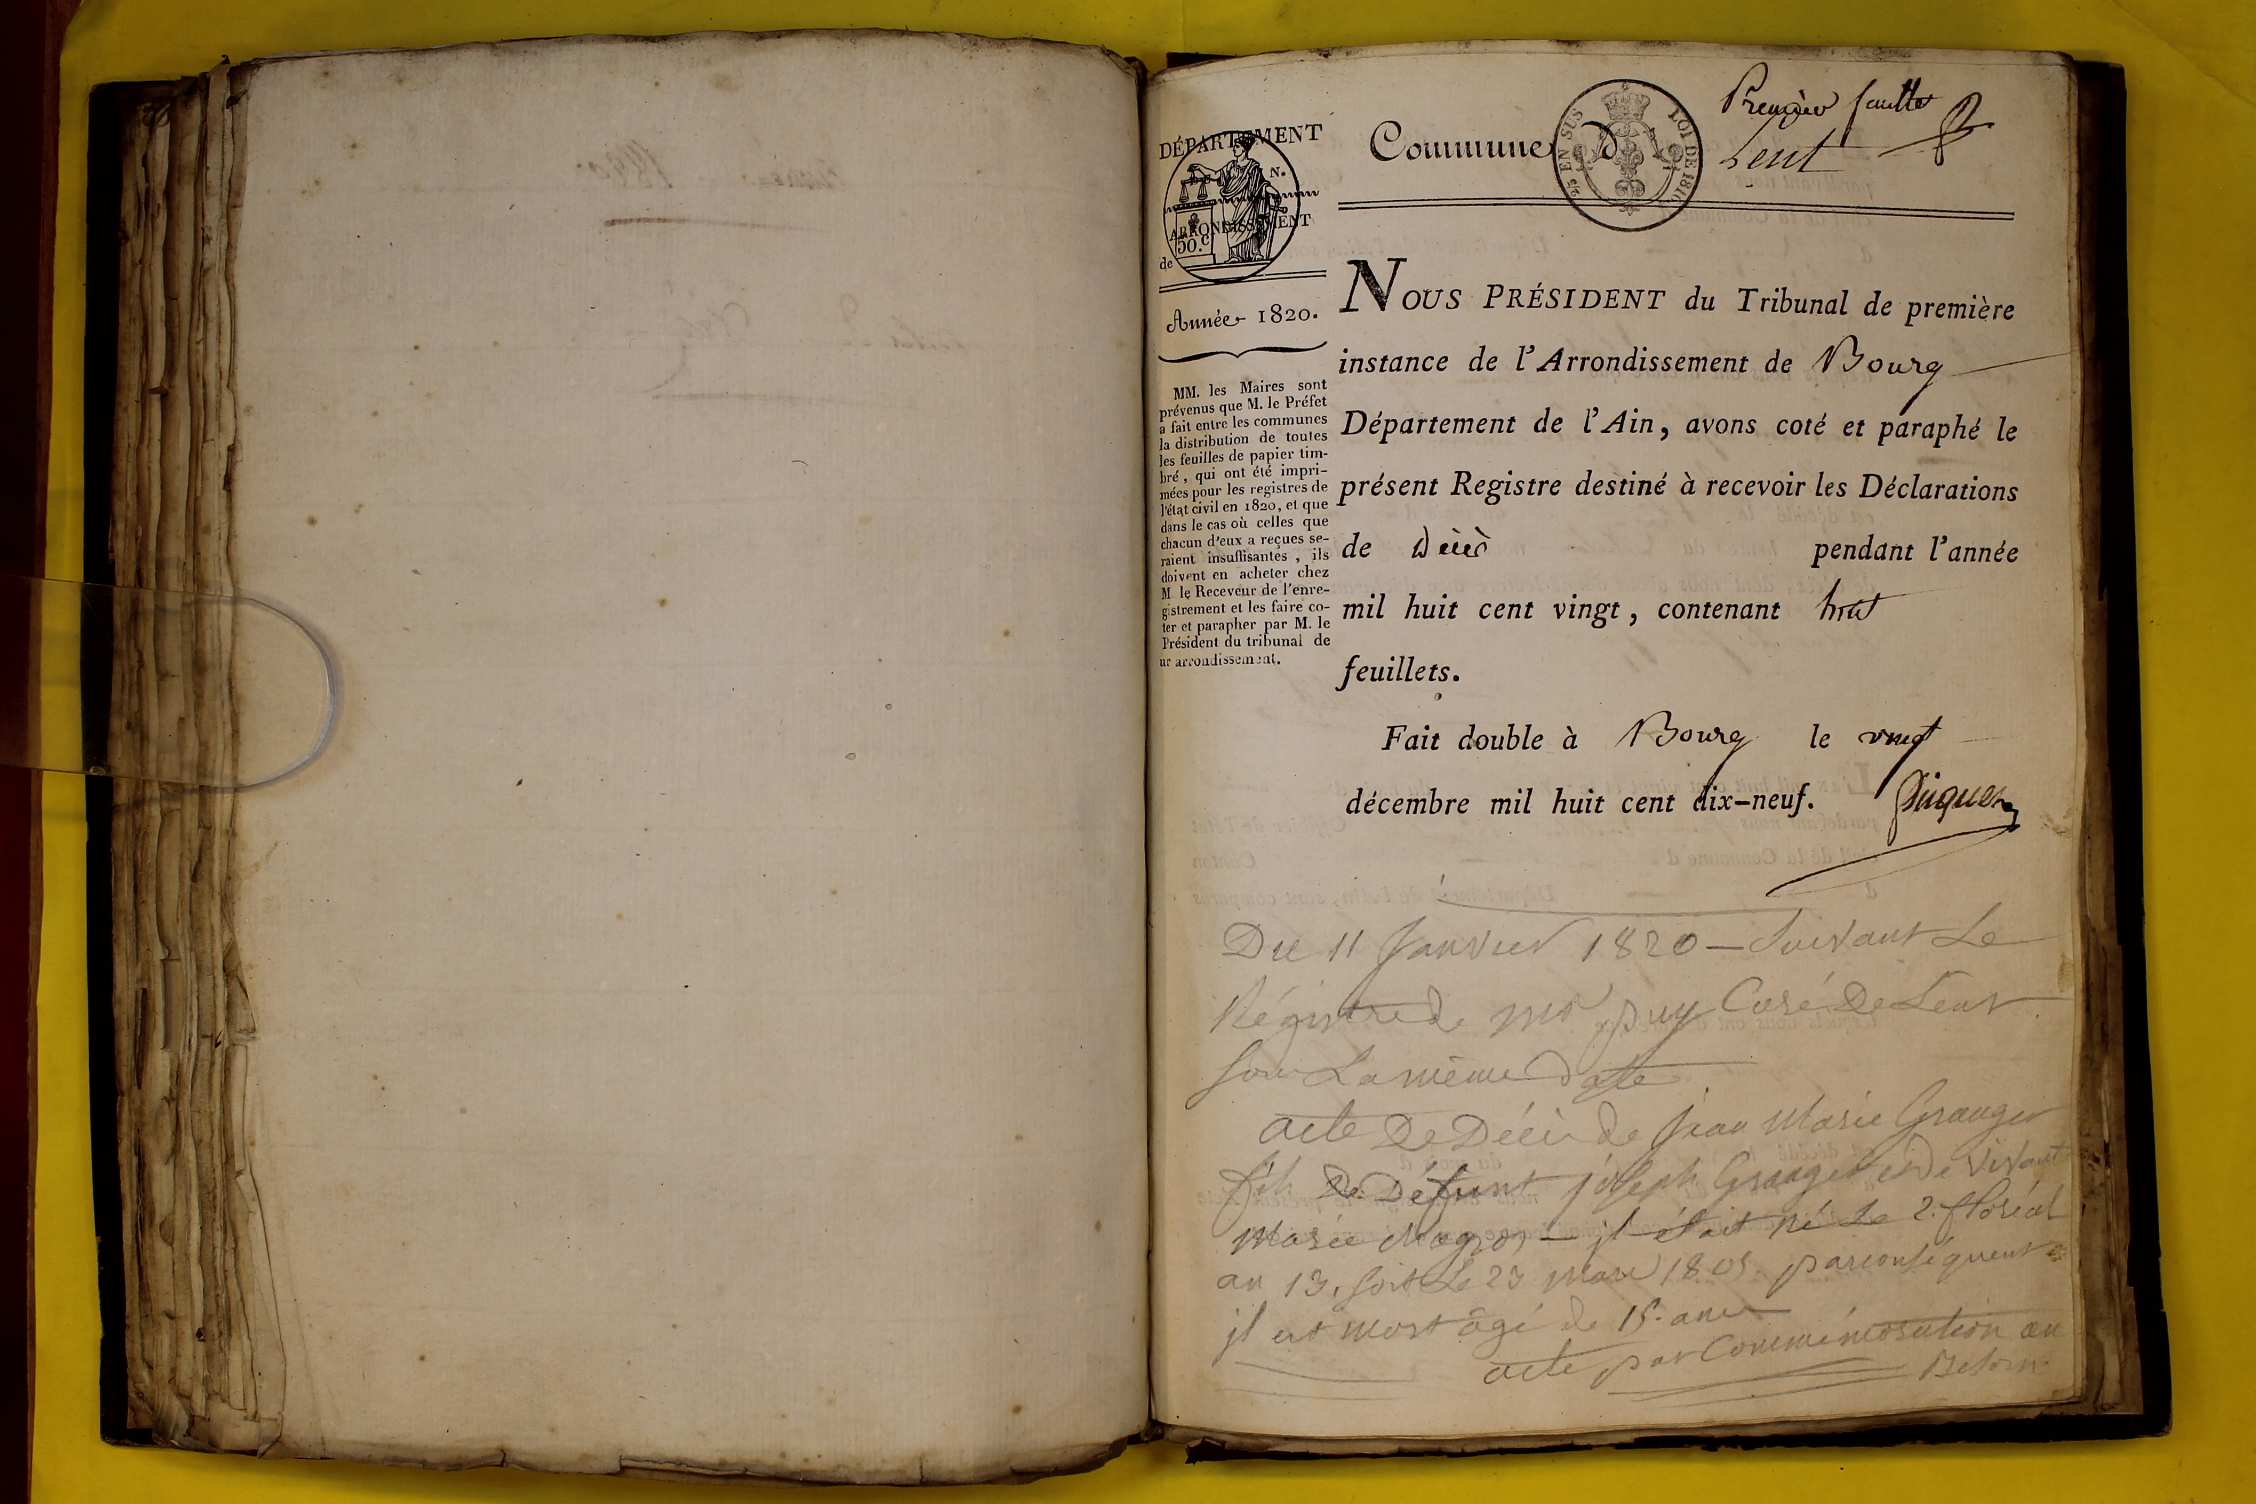 Premier feuillet
DÉPARTEMENT
N.
ARRONDISSEMENT
50.c
de
Commune D Lent
2/5 EN SUS LOI DE 1816
Année 1820.
MM. les Maires sont
prévenus que M. le Préfet
a fait entre les communes
la distribution de toutes
les feuilles de papier tim-
bré, qui ont été impri-
mées pour les registres de
l'état civil en 1820, et que
dans le cas où celles que
chacun d'eux a reçues se-
raient insuffisantes, ils
doivent en acheter chez
M. le Receveur de l'enre-
gistrement et les faire co-
ter et parapher par M. le
Président du tribunal de
ur arrondissement.
NOUS PRÉSIDENT du Tribunal de première
instance de l'Arrondissement de Bourg
Département de l'Ain, avons coté et paraphé le
présent Registre destiné à recevoir les Déclarations
de Décès pendant l'année
mil huit cent vingt, contenant huit
feuillets.
Fait double à Bourg le vingt
décembre mil huit cent dix-neuf.
Du 11 Janvier 1820 — Suivant Le
Régistre de mr puy Curé De Lent
sous La même Date
acte De Décès de jean Marie Granger
fils De Défunt joseph Granger et De vivante
Marie — il était né le 2. floréal
an 13, soit Le 23 1805. par conséquent
il est mort âgé de 15. ans
acte par Commémoration au
Besoin